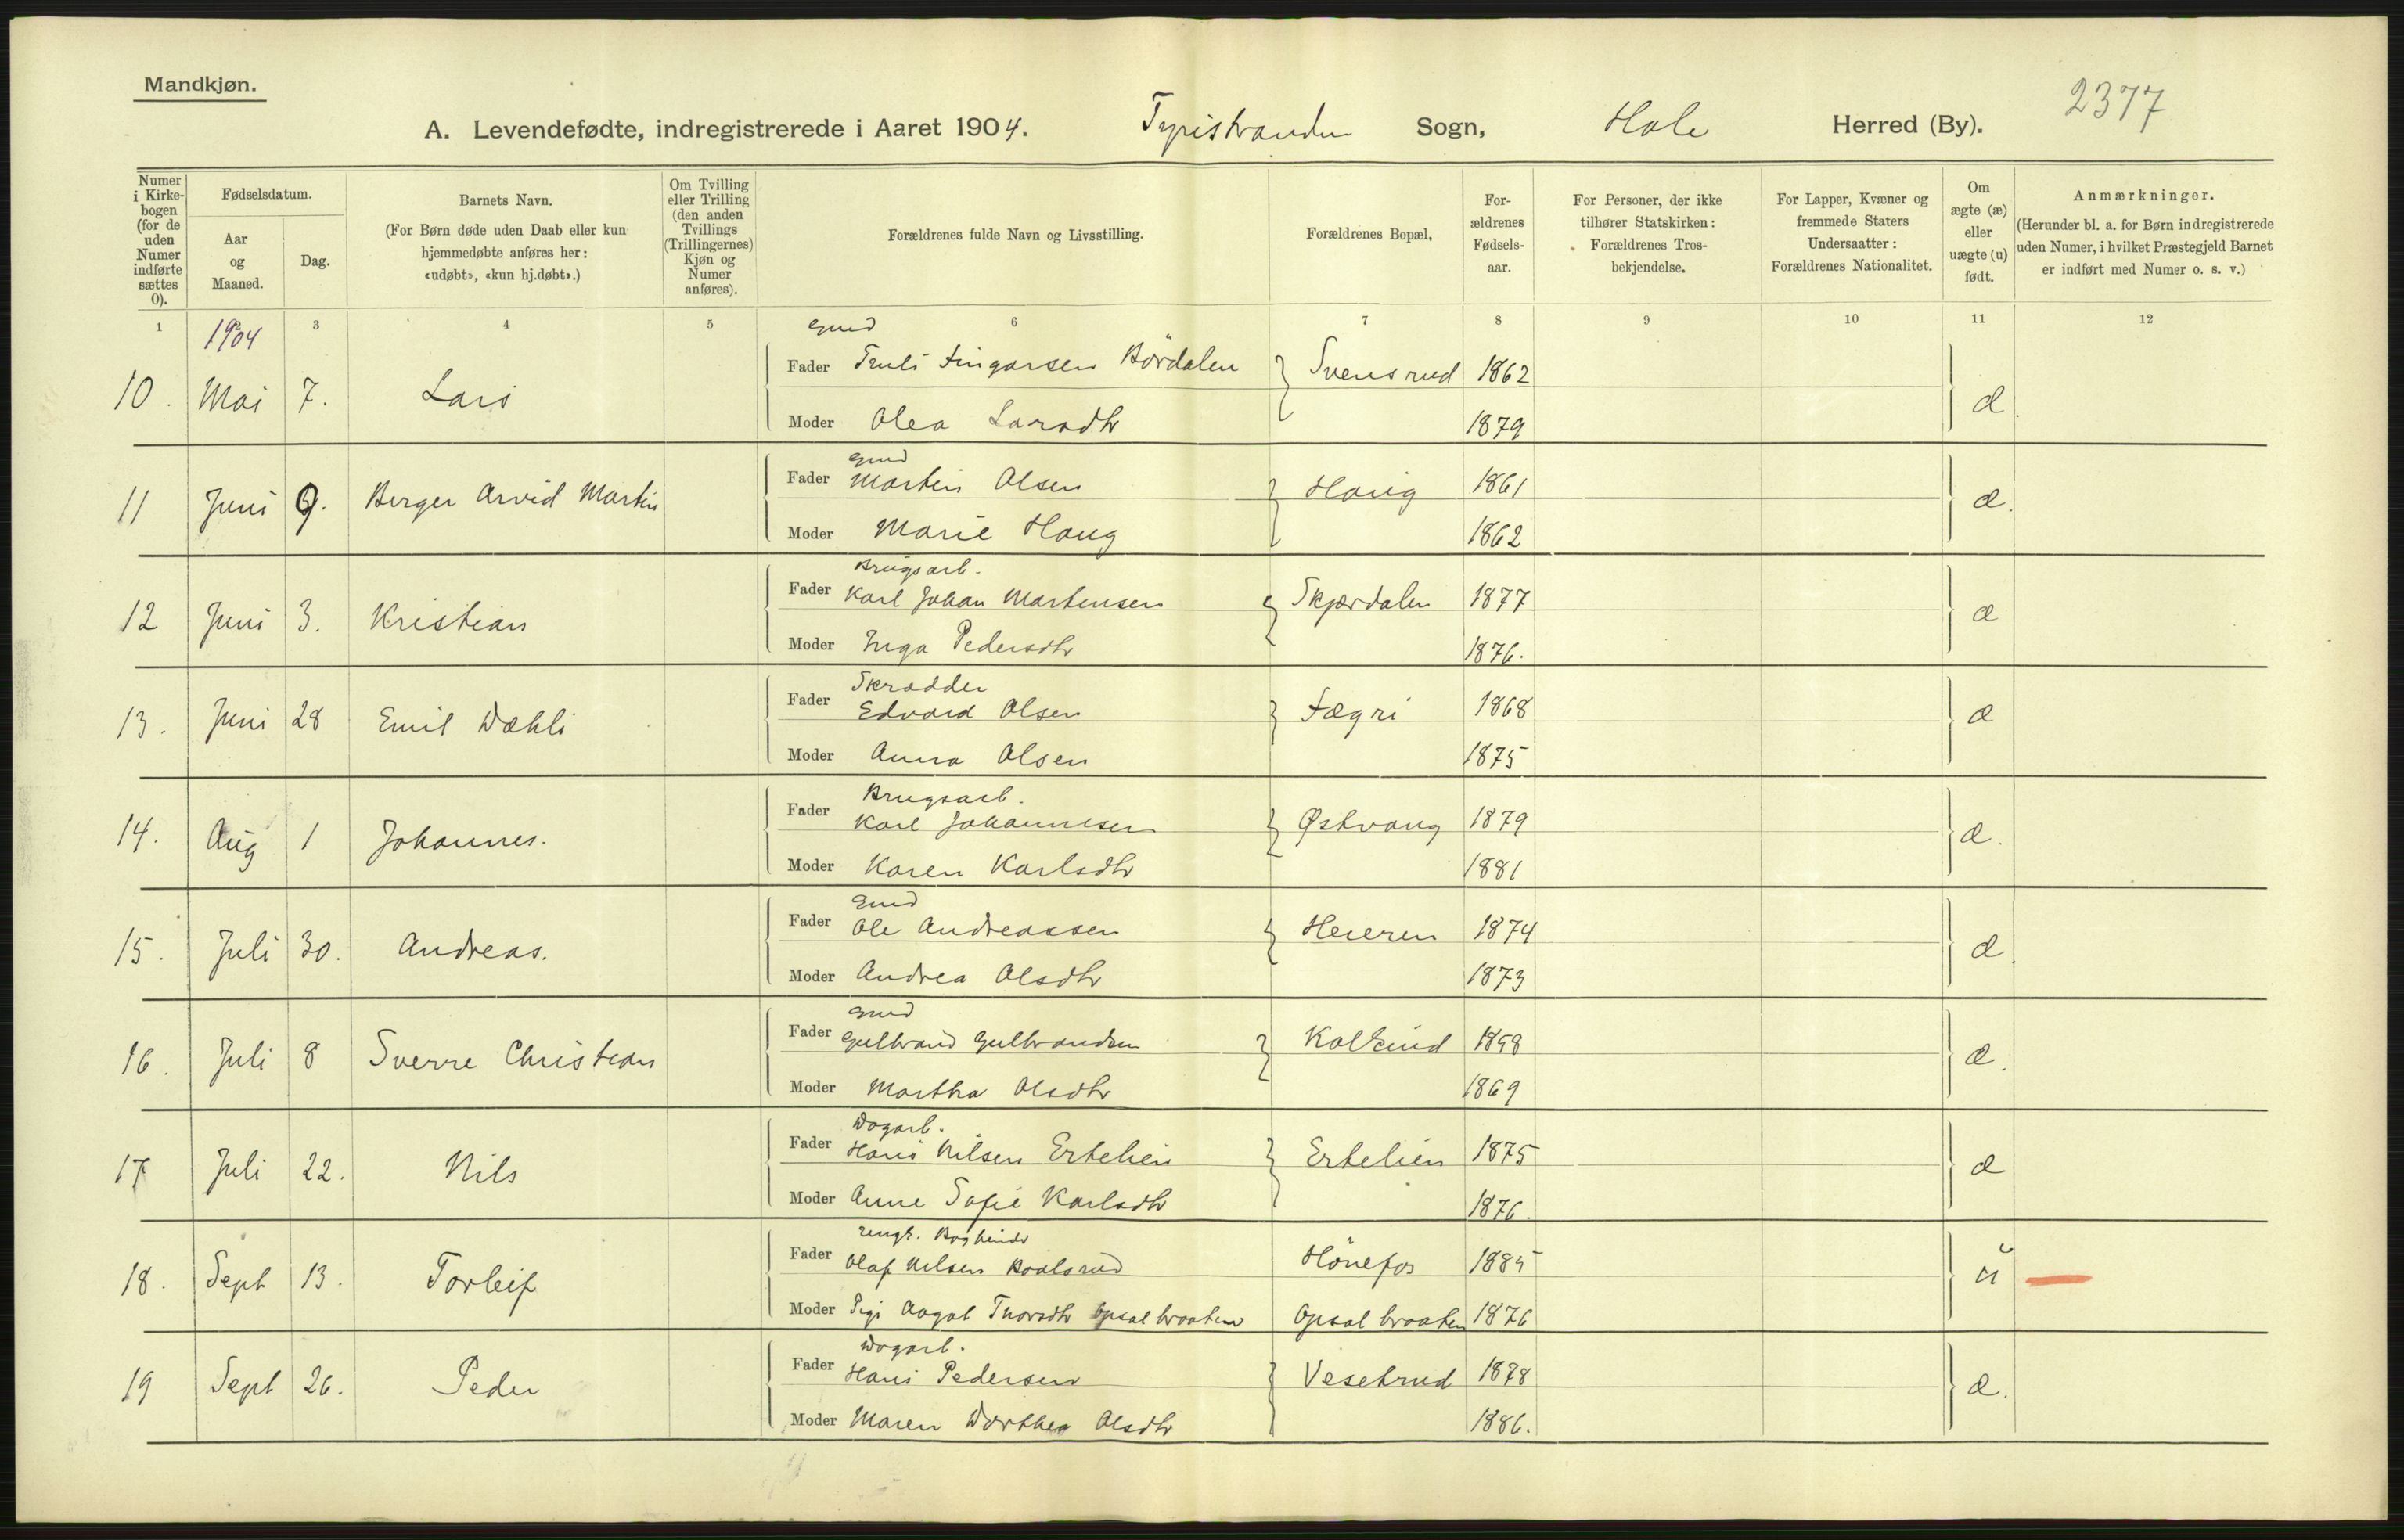 Mandkjøn.
2377
A. Levendefødte, indregistrerede i Aaret 1904. Tyristranden Sogn, Hole Herred (By).
Numer i Kirkebogen (for de uden Numer indførte sættes 0).
Fødselsdatum.
Aar og Maaned.
Dag.
Barnets Navn.
(For Børn døde uden Daab eller kun hjemmedøbte anføres her: «udøbt», «kun hj.døbt».)
Om Tvilling eller Trilling (den anden Tvillings (Trillingernes) Kjøn og Numer anføres).
Forældrenes fulde Navn og Livsstilling.
Forældrenes Bopæl,
Forældrenes Fødselsaar.
For Personer, der ikke tilhører Statskirken: Forældrenes Trosbekjendelse.
For Lapper, Kvæner og fremmede Staters Undersaatter: Forældrenes Nationalitet.
Om ægte (æ) eller uægte (u) født.
Anmærkninger.
(Herunder bl. a. for Børn indregistrerede uden Numer, i hvilket Præstegjeld Barnet er indført med Numer o. s. v.)
1 3 4 5 6 7 8 9 10 11 12
1904
Gmd
10. Mai 7. Lars Fader Truls Bördalen Svensrud 1862 æ
Moder Olea Larsdtr 1879
Gmd
11 Juni 9. Berger Arvid Martin Fader Martin Olsen Haug 1861 æ.
Moder Marie Haug 1862
Brugsarb.
12 Juni 3. Kristian Fader Karl Johan Martensen Skjærdalen 1877 æ
Moder Inga Pedersdtr 1876.
Skrædder
13. Juni 28 Emil Dæhli Fader Edvard Olsen Fægri 1868 æ
Moder Anna Olsen 1875
Brugsarb.
14. Aug 1 Johannes. Fader Karl Johannesen Østvang 1879 æ.
Moder Karen Karlsdtr 1881
Gmd
15. Juli 30. Andreas. Fader Ole Andreassen Heieren 1874 æ
Moder Andrea Olsdtr 1873
Gmd
16. Juli 8 Sverre Christian Fader Gulbrand Gulbrandsen 1868 æ.
Moder Martha Olsdtr 1869
Dagarb.
17 Juli 22. Nils Fader Hans Nilsen Ertelien Ertelien 1875 æ
Moder Anne Sofie Karlsdtr 1876.
ungk. Bogbinder
18. Sept 13. Torleif Fader Olaf Nilsen Hönefos 1885 u
Moder Aagot Thorsdtr Opsalbraaten Opsalbraaten 1876
Dagarb.
19 Sept 26. Peder Fader Hans Pedersen Vesetrud 1878 æ.
Moder Maren Dorthea Olsdtr 1886.